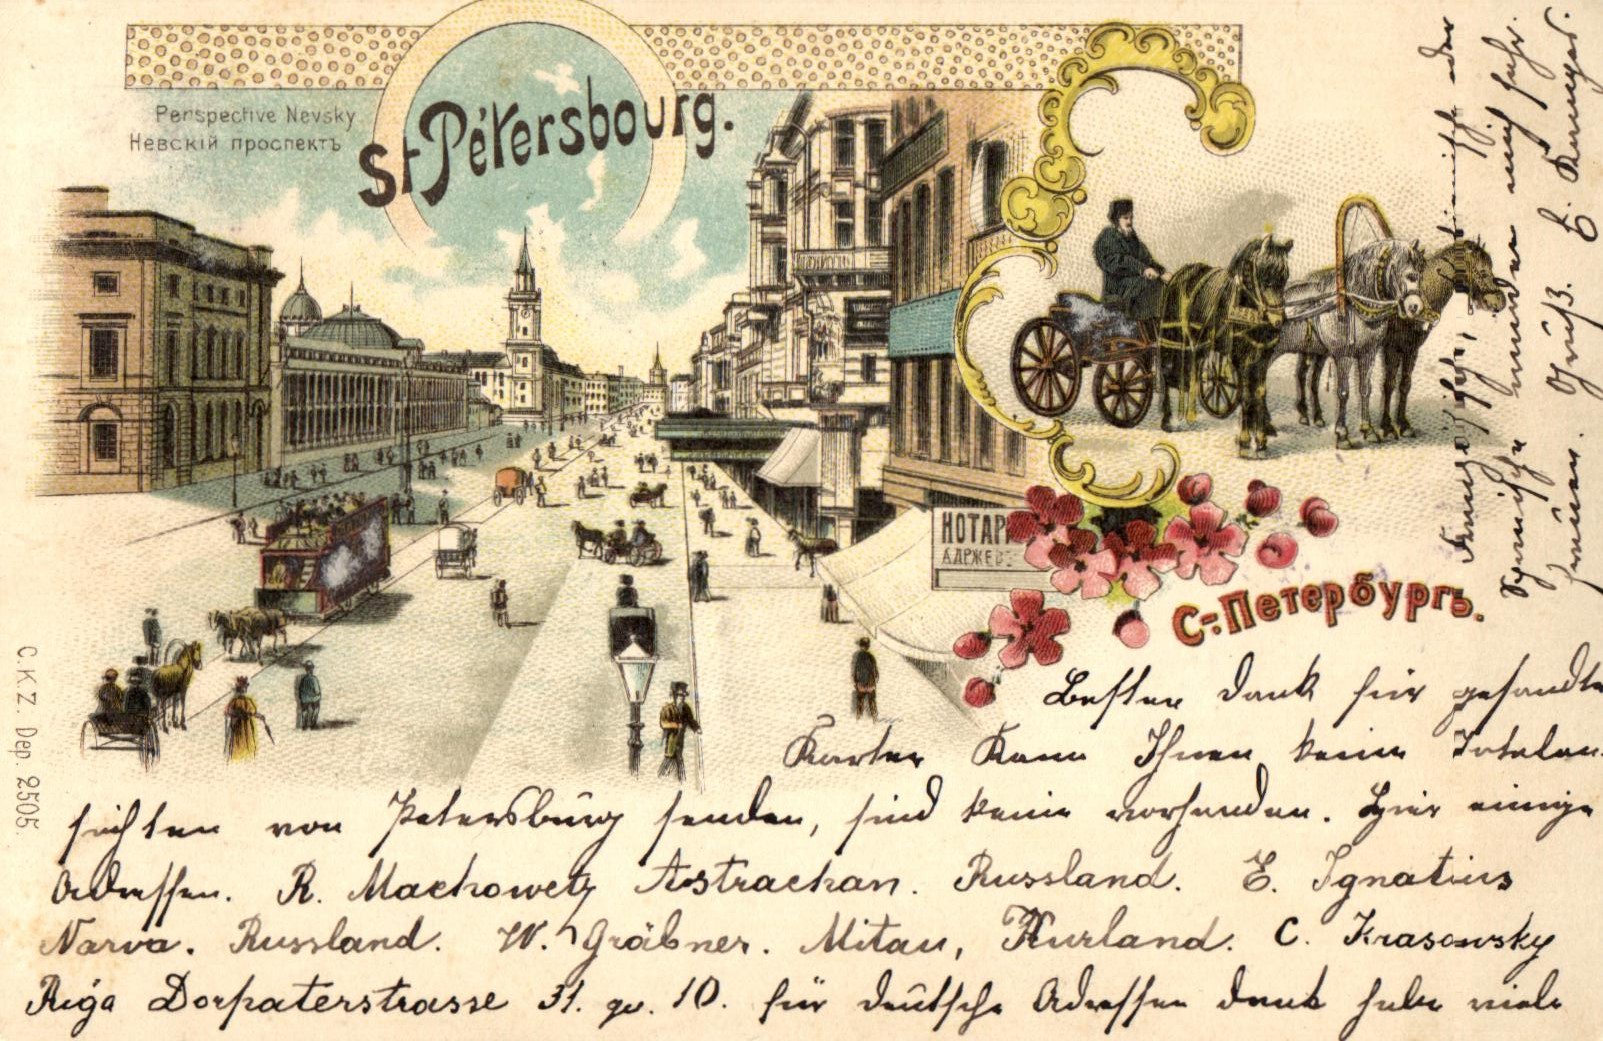 Perspective Nevsky
Невскій проспектъ
St Pétersbourg.
НОТАР
С-Петербургъ.
C.K.Z. Dep. 2505.
Besten Dank für gesandte
Karten Kann Ihnen keine Totalan-
sichten von Petersbürg senden, sind keine vorhanden. Hier einige
Adressen. R. Machowetz Astrachan. Russland. E. Ignatius
Narva. Russland. W. Gräbner. Mitau, Kurland. C. Krasowsky
Riga Dorpaterstrasse 31. qu. 10. für deutsche Adressen dank habe viele
der
Sprache mich sehr
freuen. Gruß. E.